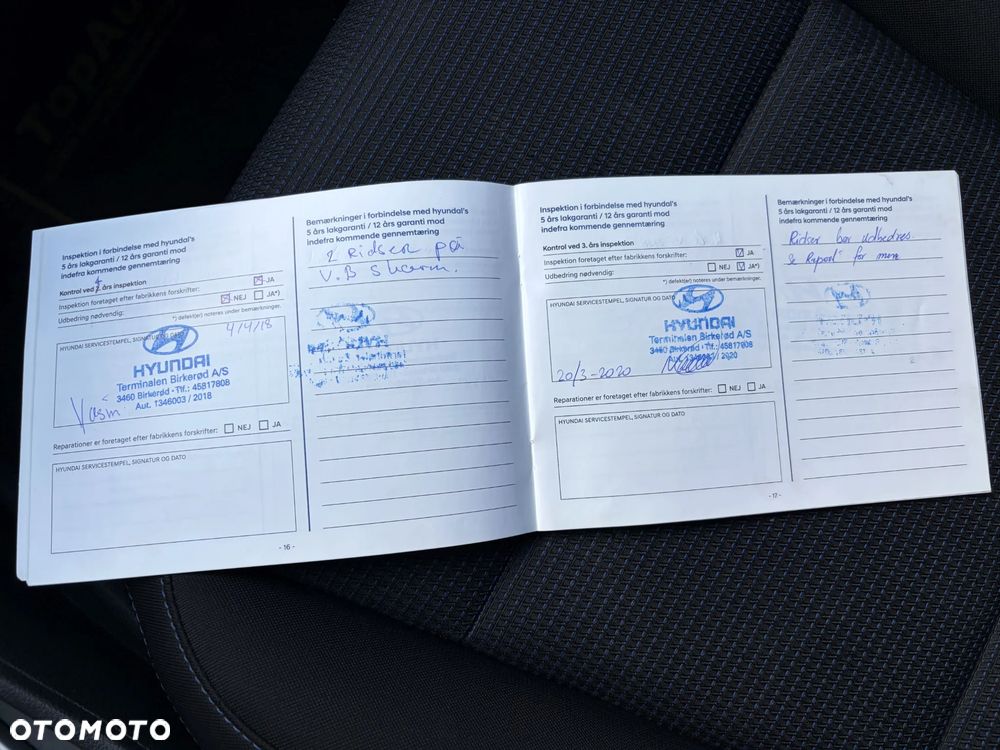 Inspektion i forbindelse med hyundai's
5 års lakgaranti / 12 års garanti mod
indefra kommende gennemtæring
Kontrol ved års inspektion
Inspektion foretaget efter fabrikkens forskrifter: JA
Udbedring nødvendig: NEJ JA*)
*) defekt(er) noteres under bemærkninger.
HYUNDAI SERVICESTEMPEL, SIGNATUR OG DATO
4/4/18
HYUNDAI
Terminalen Birkerød A/S
3460 Birkerød - Tlf.: 45817808
Aut. 1346003 / 2018
Reparationer er foretaget efter fabrikkens forskrifter: NEJ JA
HYUNDAI SERVICESTEMPEL, SIGNATUR OG DATO
- 16 -
Bemærkninger i forbindelse med hyundai's
5 års lakgaranti / 12 års garanti mod
indefra kommende gennemtæring
2 Ridser på
V.B Skærm.
Inspektion i forbindelse med hyundai's
5 års lakgaranti / 12 års garanti mod
indefra kommende gennemtæring
Kontrol ved 3. års inspektion
Inspektion foretaget efter fabrikkens forskrifter: JA
Udbedring nødvendig: NEJ JA*)
*) defekt(er) noteres under bemærkninger.
HYUNDAI SERVICESTEMPEL, SIGNATUR OG DATO
HYUNDAI
Terminalen Birkerød A/S
3460 Birkerød - Tlf.: 45817808
2020
20/3-2020
Reparationer er foretaget efter fabrikkens forskrifter: NEJ JA
HYUNDAI SERVICESTEMPEL, SIGNATUR OG DATO
- 17 -
Bemærkninger i forbindelse med hyundai's
5 års lakgaranti / 12 års garanti mod
indefra kommende gennemtæring
Ridser bør udbedres.
Se Raport for mere
OTOMOTO